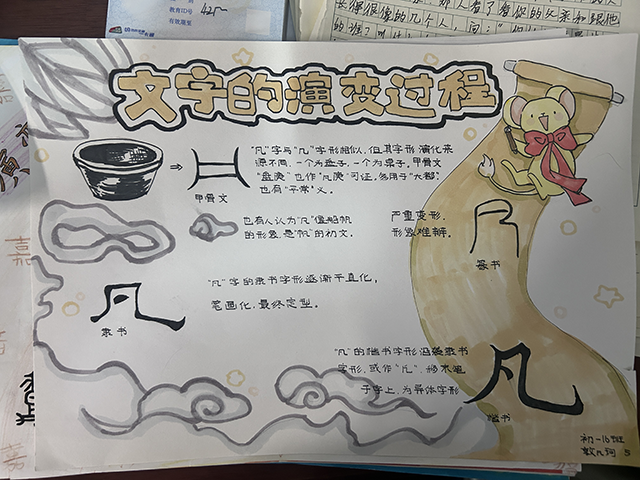 教育ID号
有效期至
文字的演变过程
"凡"字与"几"字形相似,但其字形演化来
源不同,一个为盘子,一个为桌子。甲骨文
"盘庚"也作"凡庚"可证,多用于"大都",
也有"平常"义。
甲骨文
也有人认为"凡"像船帆
的形象,是"帆"的初文。
严重变形,
形象难辨。
篆书
"凡"字的隶书字形逐渐平直化,
笔画化,最终定型。
凡
隶书
"凡"的楷书字形沿袭隶书
字形,或作"凢",
于字上,为异体字形
凡
楷书
初一16班